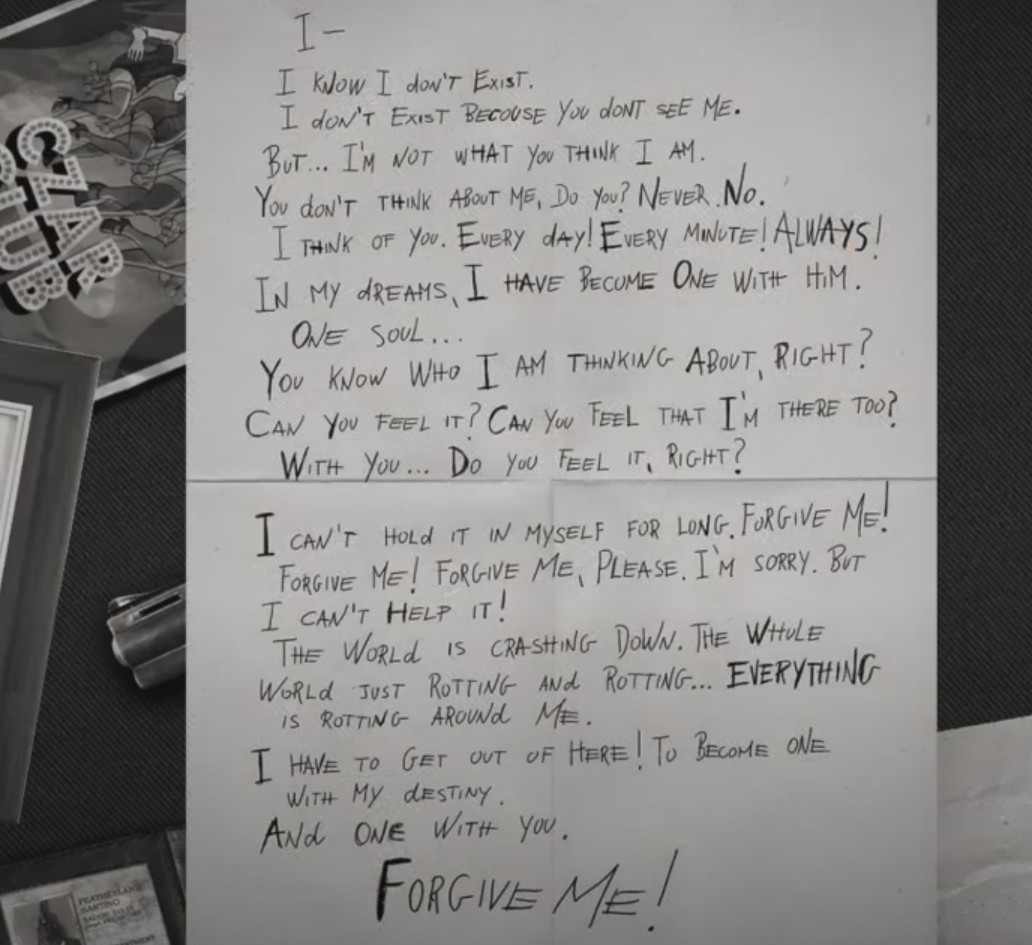 CZAR
CLUB
I—
I KNOW I DON'T EXIST.
I DON'T EXIST BECOUSE YOU DONT SEE ME.
BUT... I'M NOT WHAT YOU THINK I AM.
YOU DON'T THINK ABOUT ME, DO YOU? NEVER. NO.
I THINK OF YOU. EVERY DAY! EVERY MINUTE! ALWAYS!
IN MY DREAMS, I HAVE BECOME ONE WITH HIM.
ONE SOUL...
YOU KNOW WHO I AM THINKING ABOUT, RIGHT?
CAN YOU FEEL IT? CAN YOU FEEL THAT I'M THERE TOO?
WITH YOU... DO YOU FEEL IT, RIGHT?
I CAN'T HOLD IT IN MYSELF FOR LONG. FORGIVE ME!
FORGIVE ME! FORGIVE ME, PLEASE. I'M SORRY. BUT
I CAN'T HELP IT!
THE WORLD IS CRASHING DOWN. THE WHOLE
WORLD JUST ROTTING AND ROTTING... EVERYTHING
IS ROTTING AROUND ME.
I HAVE TO GET OUT OF HERE! TO BECOME ONE
WITH MY DESTINY.
AND ONE WITH YOU.
FORGIVE ME!
FEATHERLAND
SANTINO